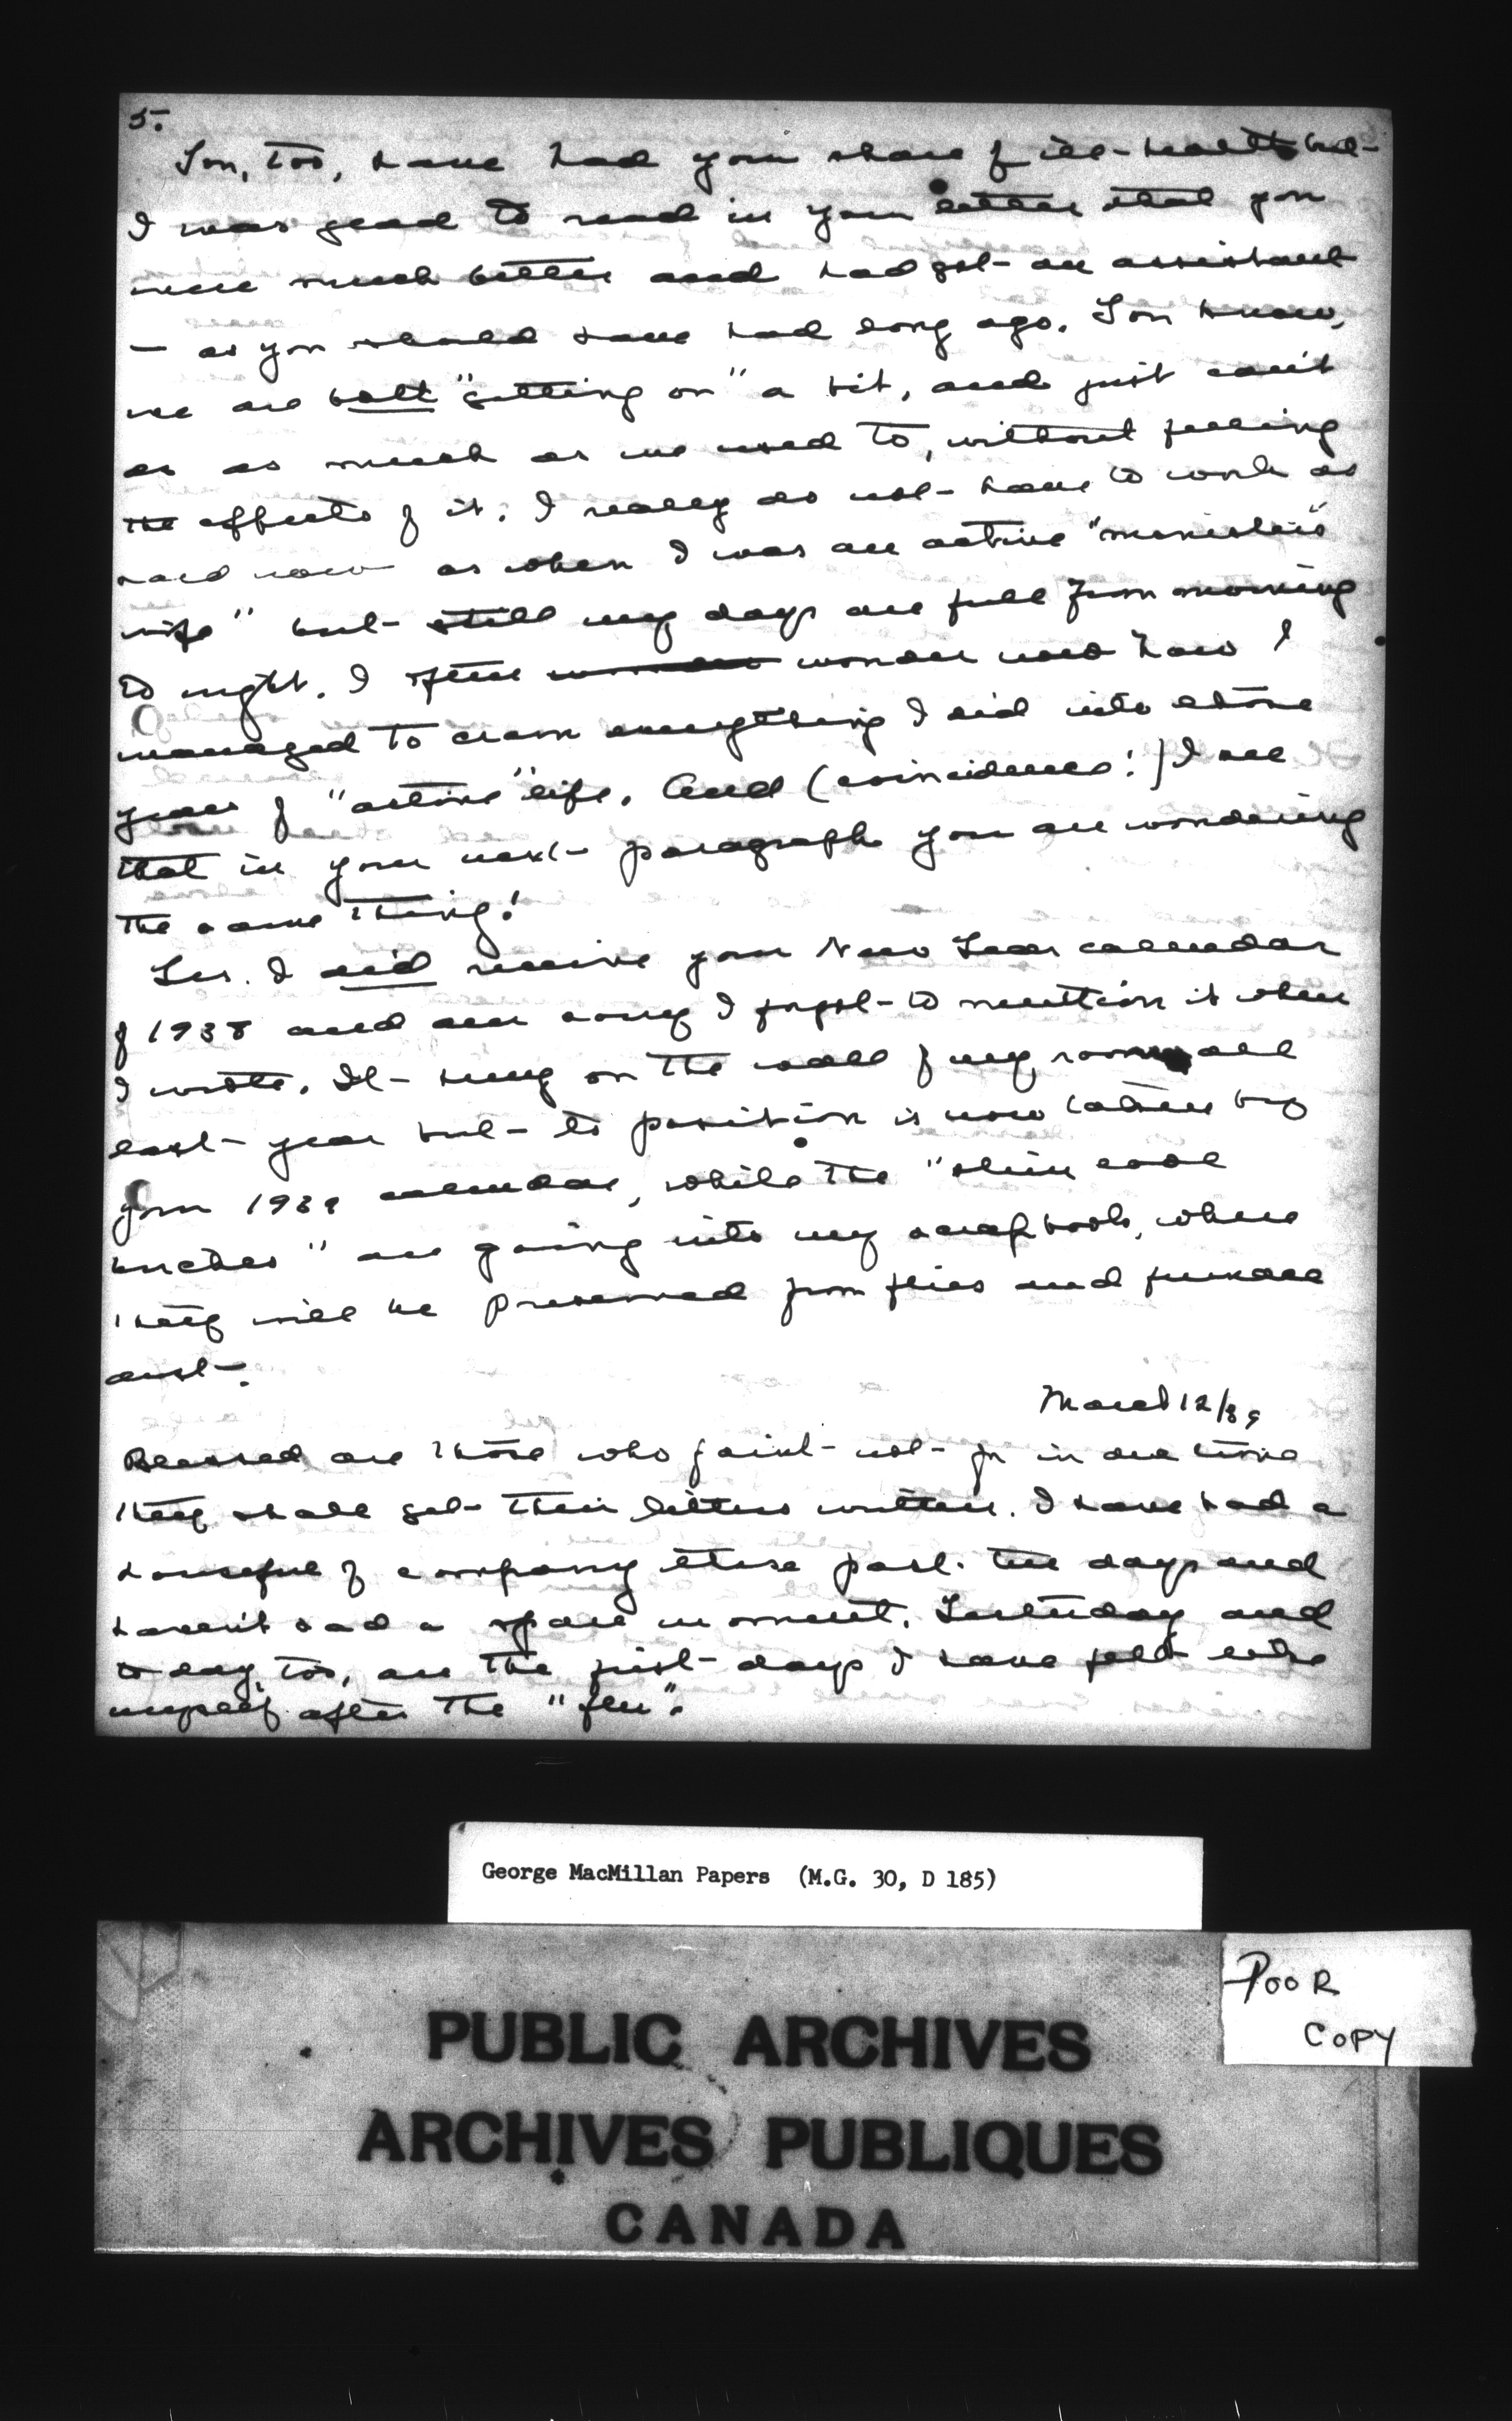 5.
You, too, have had your share of ill-health but
I was glad to read in your letter that you
were much better and had got an assistant
— as you should have had long ago. You know,
we are both "getting on" a bit, and just can't
do as much as we used to, without feeling
the effects of it. I really do not have to work as
hard now as when I was an active "minister's
wife" but still my days are full from morning
to night. I often wonder wonder now how I
managed to cram everything I did into those
years of "active" life. And (coincidence!) I see
that in your next paragraph you are wondering
the same thing!
Yes. I did receive your New Year calendar
of 1938 and am sorry I forgot to mention it when
I wrote. It hung on the wall of my room all
last year but its position is now taken by
your 1939 calendar, while the "slim cool
birches" are going into my scrapbook, where
they will be preserved from flies and furnace
dust.
March 12/39
Blessed are those who faint not for in due time
they shall get their letters written. I have had a
houseful of company these past ten days and
haven't had a spare moment. Yesterday and
to day, too, are the first days I have felt like
myself after the "flu".
George MacMillan Papers (M.G. 30, D 185)
POOR
COPY
PUBLIC ARCHIVES
ARCHIVES PUBLIQUES
CANADA